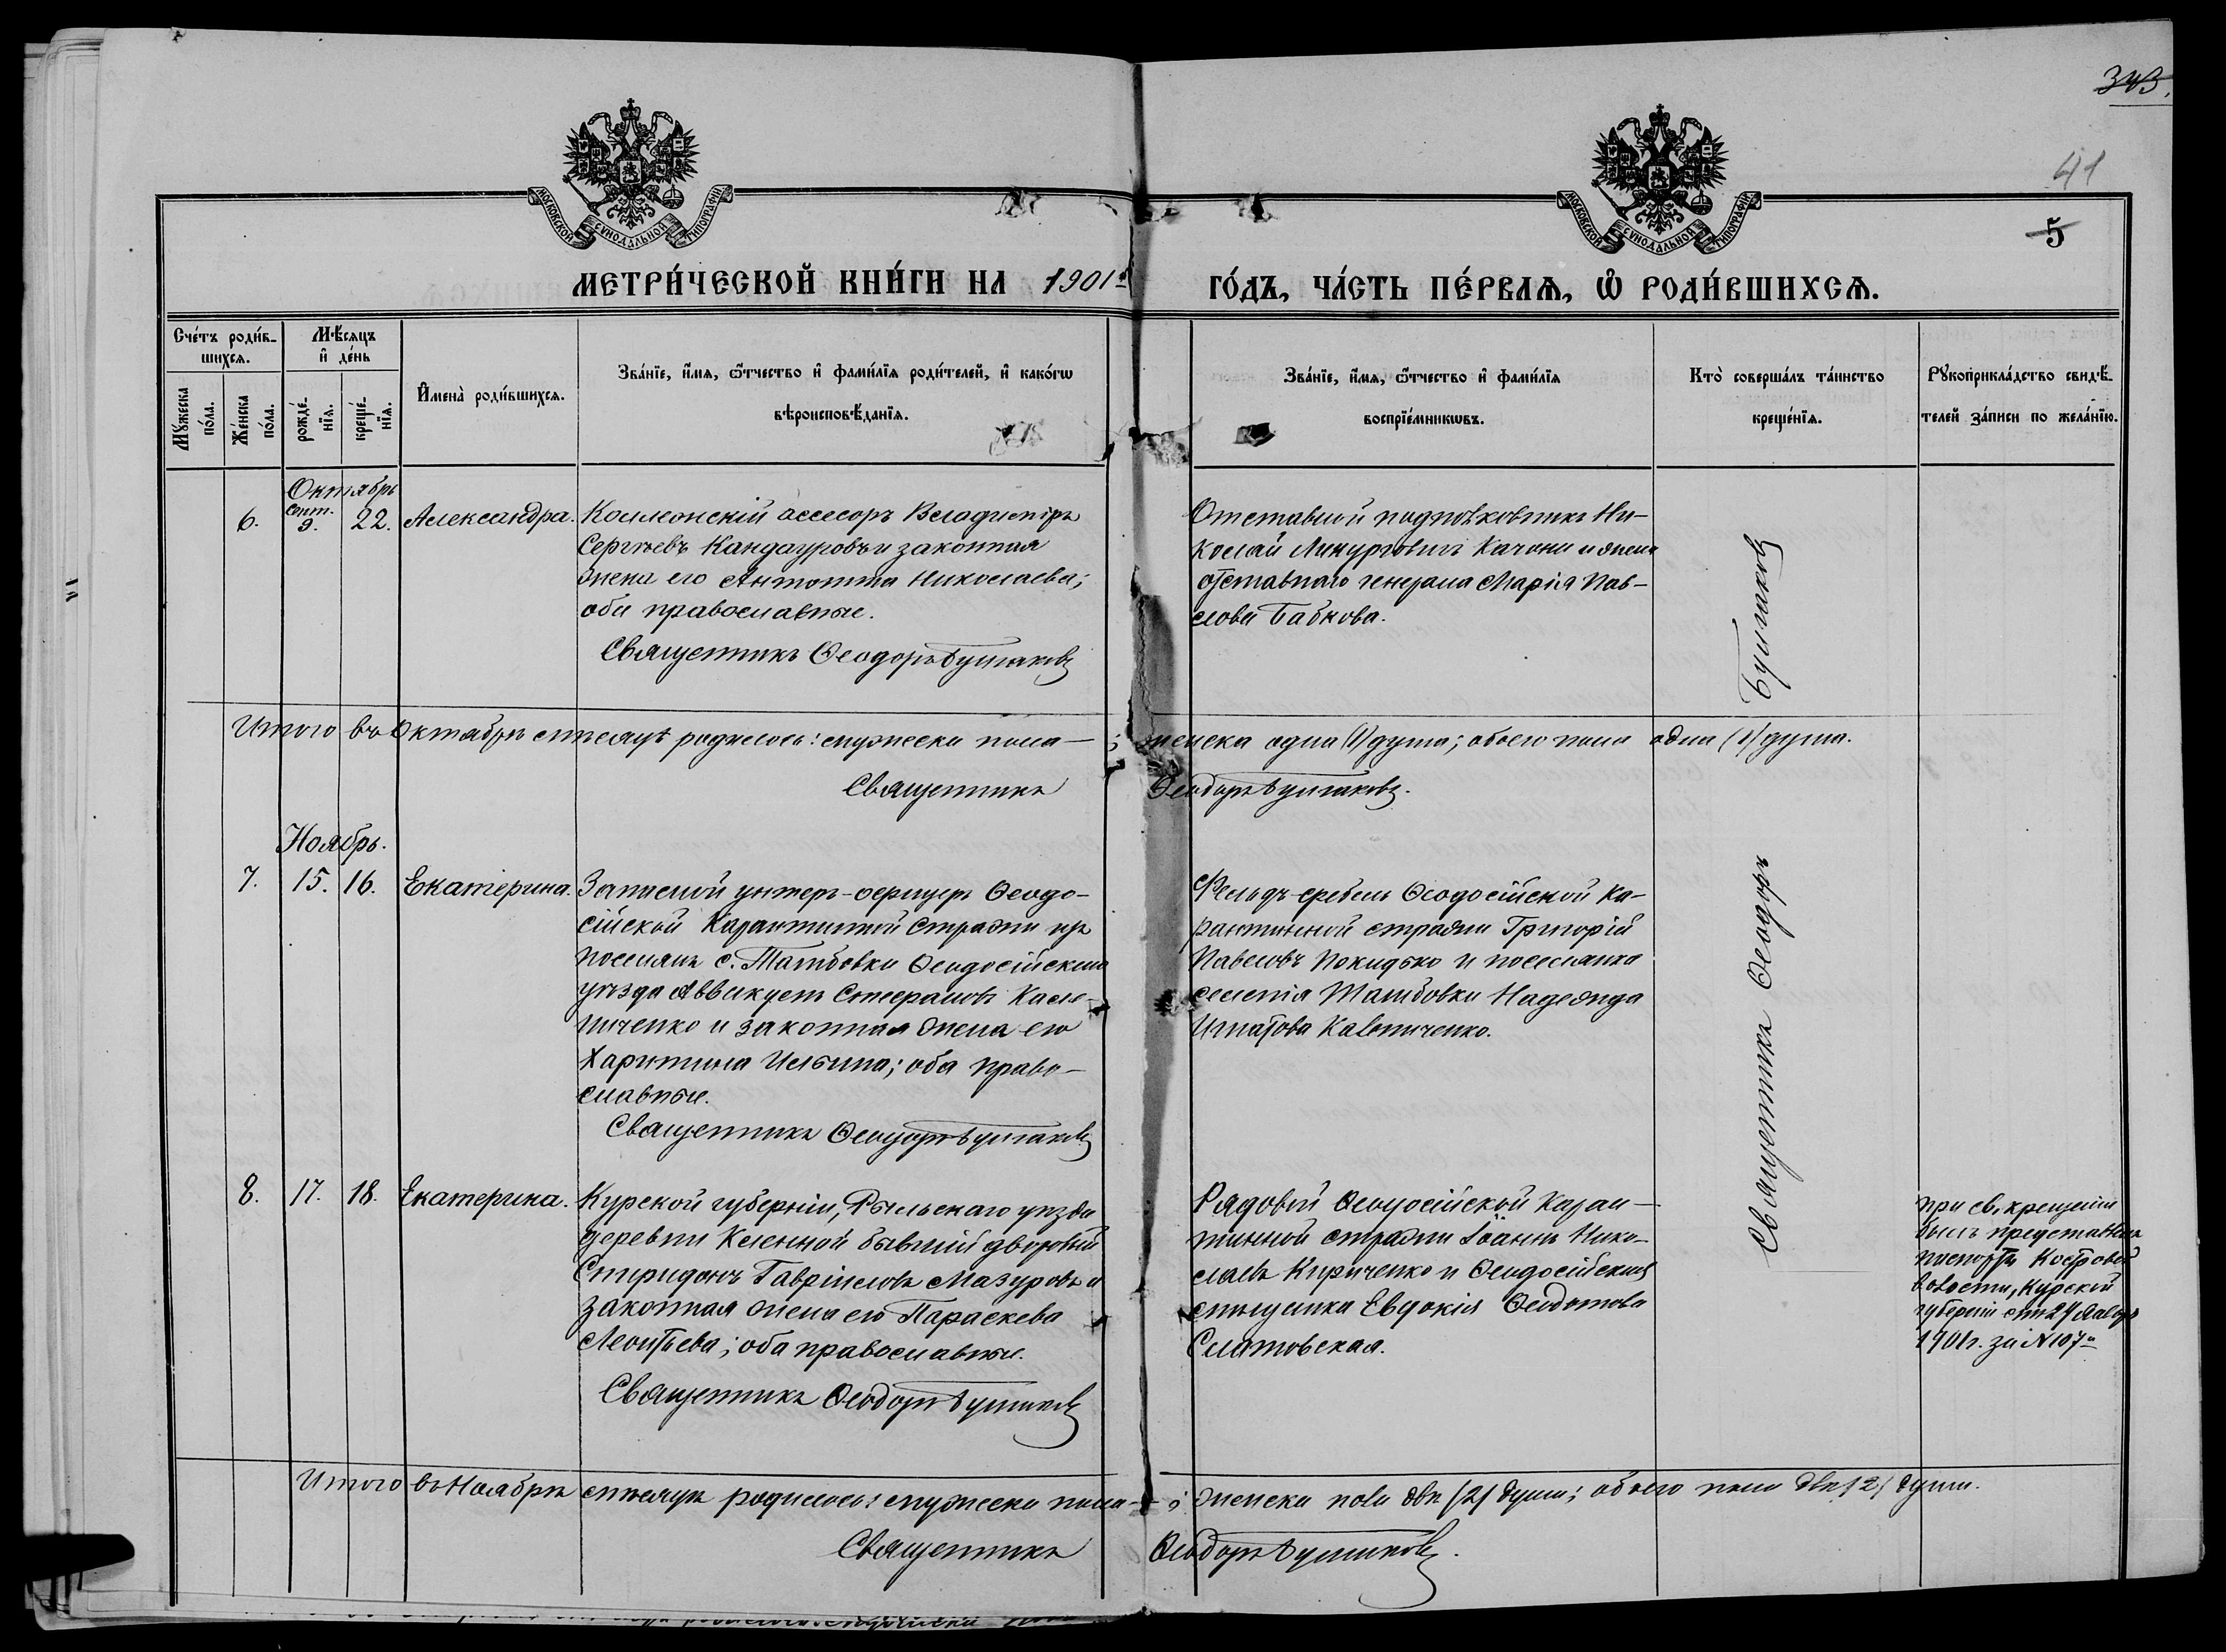 343.
41
5
МОСКОВСКОЙ СѴНОДАЛЬНОЙ ТИПОГРАФІИ
МОСКОВСКОЙ СѴНОДАЛЬНОЙ ТИПОГРАФІИ
МЕТРИ́ЧЕСКОЙ КНИ́ГИ НА 1901й
ГО́ДЪ, ЧА́СТЬ ПЕ́РВАѦ, Ѡ҆ РОДИ́ВШИХСѦ.
Сче́тъ роди́в-
шихсѧ.
Мꙋ́жеска по́ла.
Же́нска по́ла.
Мѣ́сѧцъ
и҆ де́нь
рожде́-
нїѧ.
креще́-
нїѧ.
И҆мена̀ роди́вшихсѧ.
Зва́нїе, и҆́мѧ, ѻ҆́тчество и҆ фами́лїѧ роди́телей, и҆ како́гѡ
вѣроисповѣ́данїѧ.
Зва́нїе, и҆́мѧ, ѻ҆́тчество и҆ фами́лїѧ
воспрїе́мникѡвъ.
Кто̀ соверша́лъ та́инство
креще́нїѧ.
Рꙋкоприкла́дство свидѣ́-
телей за́писи по жела́нїю.
Октябрь
6.
Сент.
9.
22.
Александра.
Коллежскій ассесоръ Владиміръ
Сергѣевъ Кандауровъ и законная
жена его Антонина Николаева;
оба православные.
Священникъ Ѳеодоръ Булгаковъ
Отставной подполковникъ Ни-
колай Ликурговичъ Качони и жена
отставнаго генерала Марія Пав-
лова Бабкова.
Итого въ Октябрѣ мѣсяцѣ родилось: мужеска пола — ; женска одна (1) душа; обоего пола одна (1) душа.
Священникъ Ѳеодоръ Булгаковъ.
Ноябрь.
7.
15.
16.
Екатерина.
Запасной унтеръ-офицеръ Ѳеодо-
сійской Карантинной стражи изъ
поселянъ с. Тамбовки Ѳеодосійскаго
уѣзда Аввакумъ Стефановъ Кале-
ниченко и законная жена его
Харитина Ильина; оба право-
славные.
Священникъ Ѳеодоръ Булгаковъ
Фельдфебель Ѳеодосійской Ка-
рантинной стражи Григорій
Павловъ Покидько и поселянка
селенія Тамбовки Надежда
Игнатова Калениченко.
8.
17.
18.
Екатерина.
Курской губерніи, Рыльскаго уѣзда
деревни Келенной бывшій дворовый
Спиридонъ Гавріиловъ Мазуровъ и
законная жена его Параскева
Леонтьева; оба православные.
Священникъ Ѳеодоръ Булгаковъ
Рядовой Ѳеодосійской Каран-
тинной стражи Іоаннъ Нико-
лаевъ Кириченко и Ѳеодосійская
мѣщанка Евдокія Ѳеодотова
Слатовская.
Священникъ Ѳеодоръ Булгаковъ
При св. крещеніи
былъ представленъ
паспортъ
волости, Курской
губерніи отъ 24 Января
1901 г. за № 107.
Итого въ Ноябрѣ мѣсяцѣ родилось: мужеска пола — ; женска пола двѣ (2) души; обоего пола двѣ (2) души.
Священникъ Ѳеодоръ Булгаковъ.